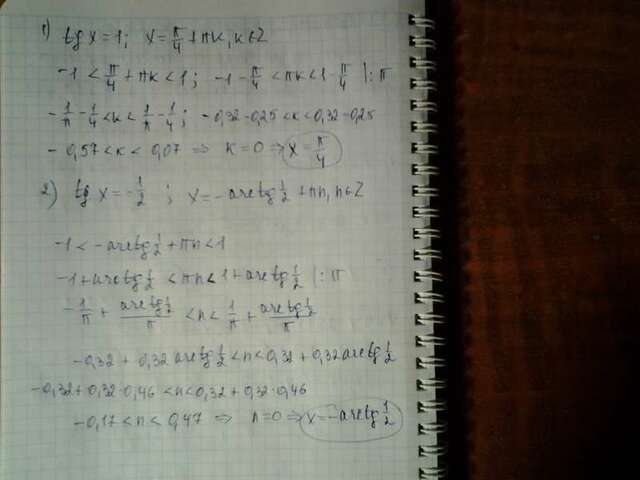 1) tg x = 1; x = π/4 + πk, k∈Z
-1 < π/4 + πk < 1; -1 - π/4 < πk < 1 - π/4 |:π
-1/π - 1/4 < k < 1/π - 1/4; -0,32-0,25 < k < 0,32-0,25
-0,57 < k < 0,07 ⇒ k=0 ⇒ x = π/4
2) tg x = -1/2 ; x = -arctg 1/2 + πn, n∈Z
-1 < -arctg 1/2 + πn < 1
-1 + arctg 1/2 < πn < 1 + arctg 1/2 |:π
-1/π + arctg 1/2/π < n < 1/π + arctg 1/2/π
-0,32 + 0,32 arctg 1/2 < n < 0,32 + 0,32 arctg 1/2
-0,32 + 0,32·0,46 < n < 0,32 + 0,32·0,46
-0,17 < n < 0,47 ⇒ n=0 ⇒ x = -arctg 1/2